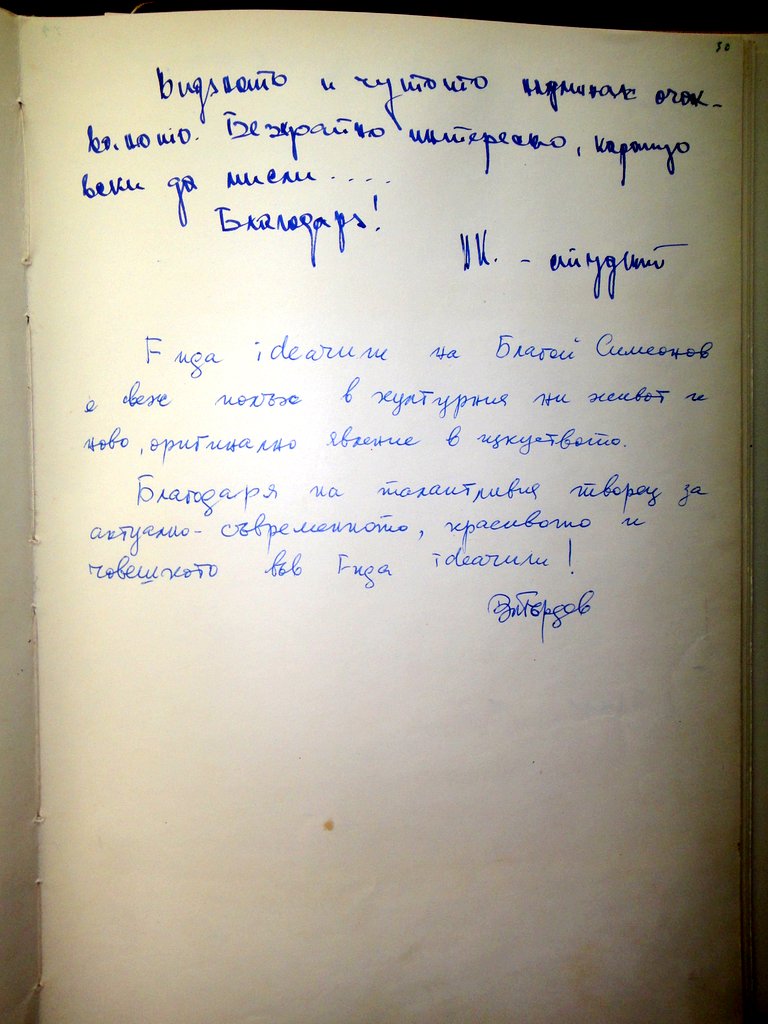 50
Видяното и чутото надминах очак-
ването. Безкрайно интересно, каращо
всеки да мисли . . . .
Благодаря!
ИК. - студент
Fида ideaчили на Благой Симеонов
е свеж полъх в културния ни живот и
ново, оригинално явление в изкуството.
Благодаря на талантливия творец за
актуално-съвременното, красивото и
човешкото във Fида ideaчили!